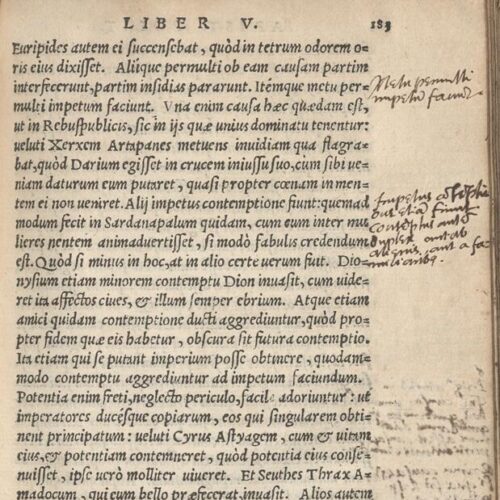 LIBER V.
183
Euripides autem ei succensebat, quòd in tetrum odorem o=
ris eius dixisset. Aliique permulti ob eam causam partim
interfecerunt, partim insidias pararunt. Itémque metu per=
multi impetum faciunt. Vna enim causa hæc quædam est,
ut in Rebuspublicis, sic in ijs quæ unius dominatu tenentur:
ueluti Xerxem Artapanes metuens inuidiam qua flagra=
bat, quòd Darium egisset in crucem iniussu suo, cùm sibi ue=
niam daturum eum putaret, quasi propter cœnam in men=
tem ei non veniret. Alij impetus contemptione fiunt: quemad
modum fecit in Sardanapalum quidam, cùm eum inter mu
lieres nentem animaduertisset, si modò fabulis credendum
est. Quòd si minus in hoc, at in alio certe uerum fuit. Dio=
nysium etiam minorem contemptu Dion inuasit, cum uide=
ret ita affectos ciues, & illum semper ebrium. Atque etiam
amici quidam contemptione ducti aggrediuntur, quòd pro=
pter fidem quæ eis habetur, obscura sit futura contemptio.
Ita etiam qui se putant imperium posse obtinere, quodam=
modo contemptu aggrediuntur ad impetum faciundum.
Potentia enim freti, neglecto periculo, facile adoriuntur: ut
imperatores ducésque copiarum, eos qui singularem obti=
nent principatum: ueluti Cyrus Astyagem, cum & uitam
eius, & potentiam contemneret, quòd potentia eius conse=
nuisset, ipse uerò molliter uiueret. Et Seuthes Thrax A=
madocum, qui eum bello præfecerat, inuasit. Alios autem
Metu permulti
impetū faciūt